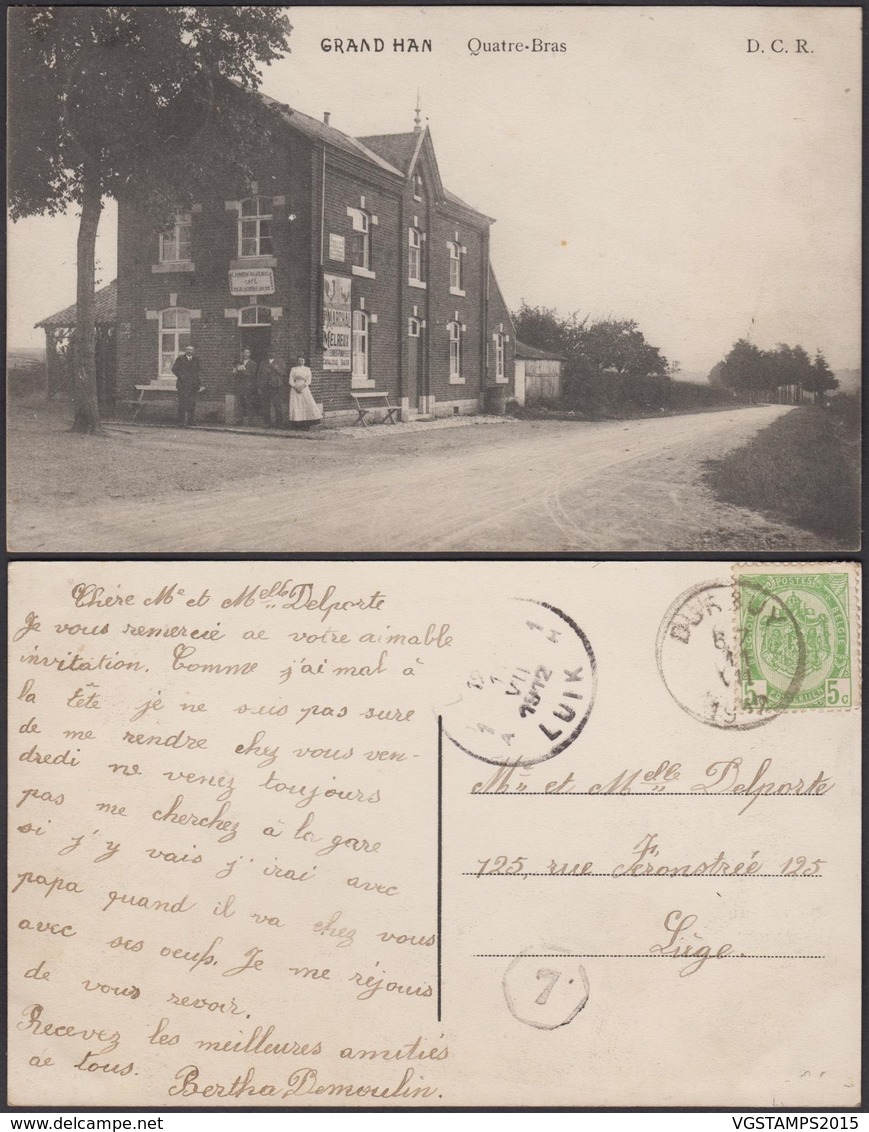 GRAND HAN Quatre-Bras D. C. R.
CAFÉ
MARCHAL
MELREUX
Chère Me et Melle Delporte
Je vous remercie de votre aimable
invitation. Comme j'ai mal à
la tête je ne suis pas sure
de me rendre chez vous ven-
dredi ne venez toujours
pas me cherchez à la gare
si j'y vais j'irai avec
papa quand il va chez vous
avec ses oeufs. Je me réjouis
de vous revoir.
Recevez les meilleures amitiés
de tous.
Bertha Demoulin.
1 H
VII
1912
LUIK
DURBUY
POSTES
5 5c
Me et Melle Delporte
125, rue Féronstrée 125
Liège.
7
VGSTAMPS2015